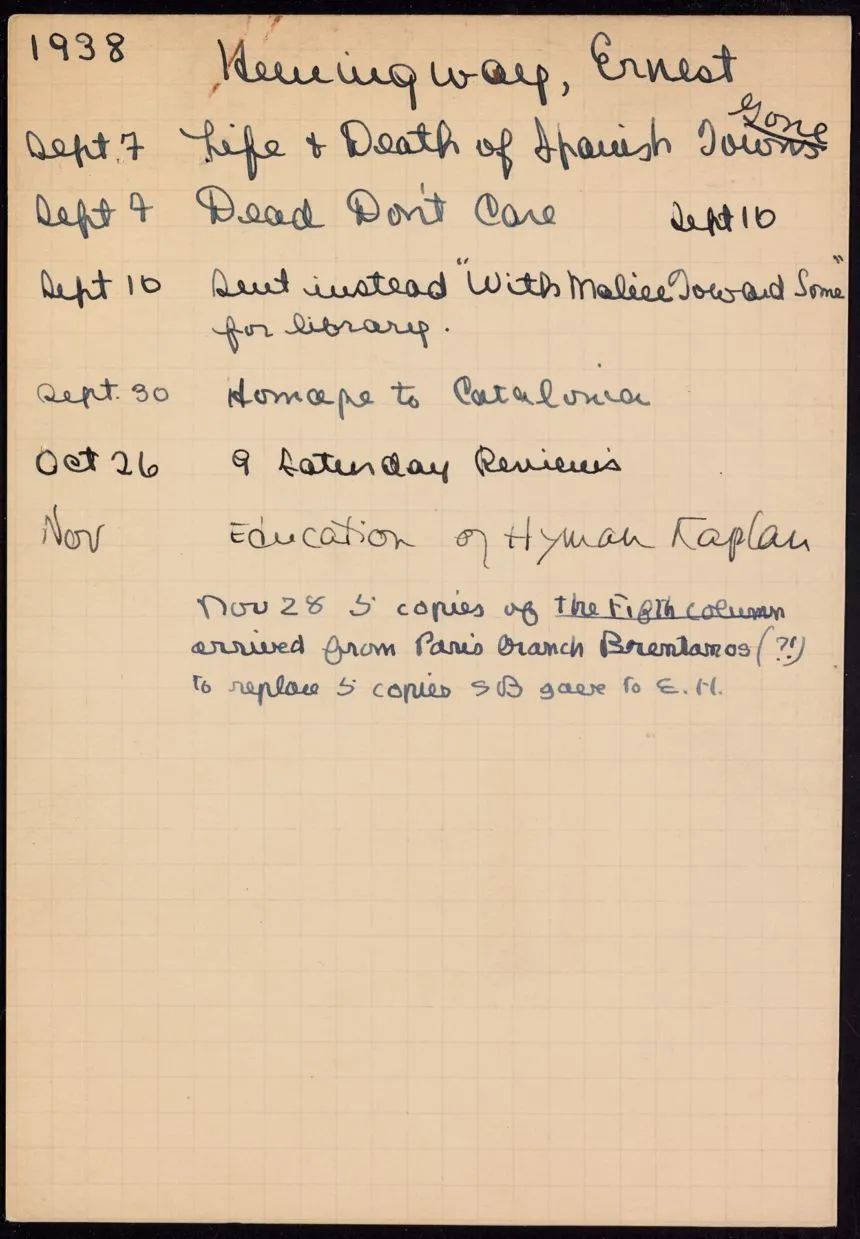 1938 Hemingway, Ernest
Gone
Sept. 7 Life & Death of Spanish Towns
Sept 7 Dead Don't Care Sept 10
Sept 10 Sent instead "With Malice Toward Some"
for library.
Sept. 30 Homage to Catalonia
Oct 26 9 Saturday Reviews
Nov Education of Hyman Kaplan
Nov 28 5 copies of the Fifth column
arrived from Paris branch Brentanos (?!)
to replace 5 copies SB gave to E. H.